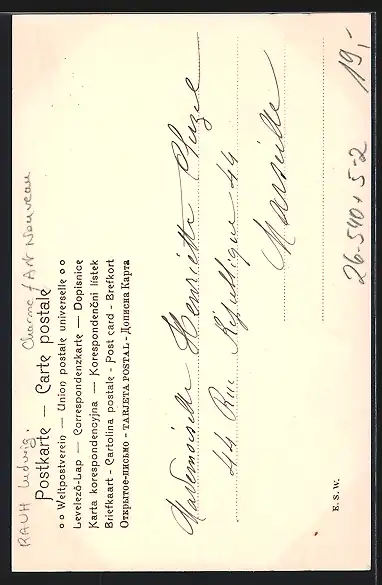 RAUH Ludwig. Charme / Art Nouveau
Postkarte — Carte postale
Weltpostverein — Union postale universelle
Levelező-Lap — Correspondenzkarte — Dopisnice
Karta korespondencyjna — Korespondenční lístek
Briefkaart - Cartolina postale - Post card - Brefkort
Открытое-письмо - TARJETA POSTAL - Дописна Карта
Mademoiselle Henriette
44 Rue République 44
Marseille
E. S. W.
26-540+5-2 19,-